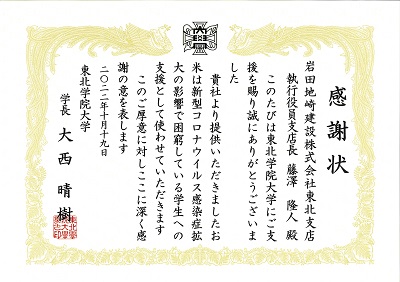 感謝状
岩田地崎建設株式会社東北支店
執行役員支店長 藤澤 隆人 殿
このたびは東北学院大学にご支
援を賜り誠にありがとうございま
した
貴社より提供いただきましたお
米は新型コロナウイルス感染症拡
大の影響で困窮している学生への
支援として使わせていただきます
このご厚意に対しここに深く感
謝の意を表します
二〇二二年十月十九日
東北学院大学
学長 大西 晴樹